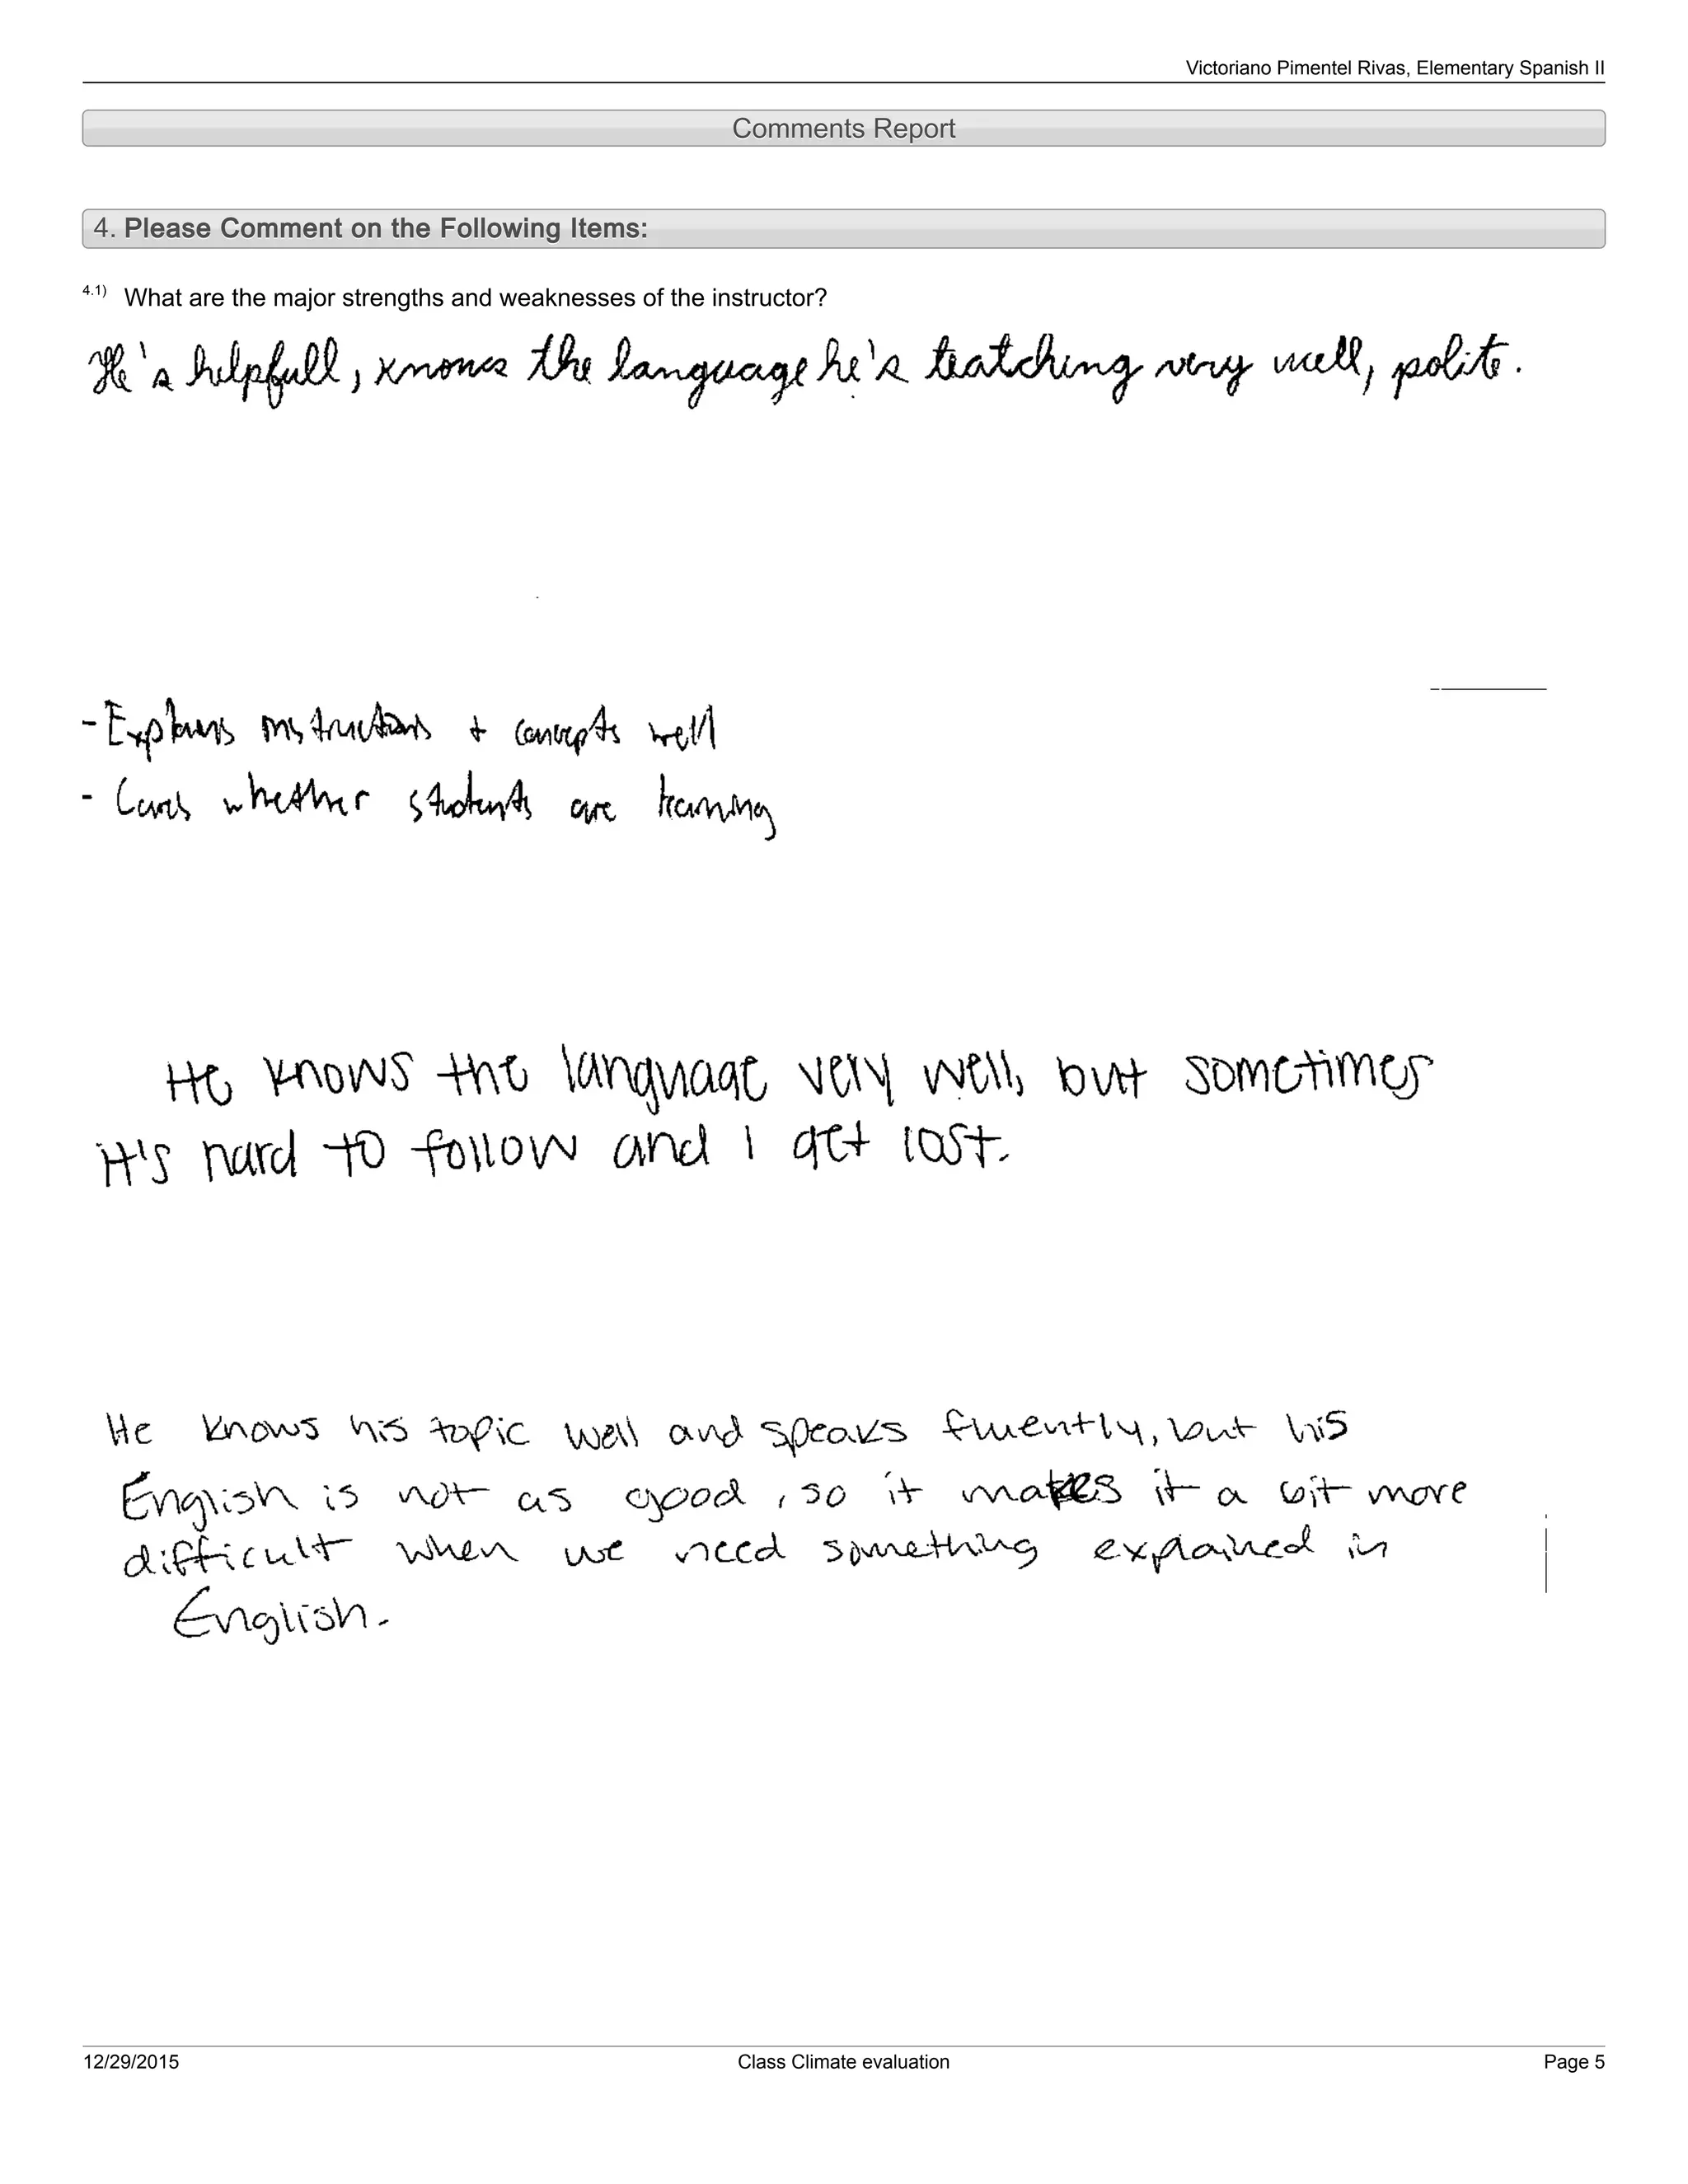 Victoriano Pimentel Rivas, Elementary Spanish II
Comments Report
4. Please Comment on the Following Items:
4.1) What are the major strengths and weaknesses of the instructor?
He's helpfull, knows the language he's teatching very well, polite.
- Explains instructions + concepts well
- Cares whether students are learning
He knows the language very well, but sometimes
it's hard to follow and I get lost.
He knows his topic well and speaks fluently, but his
English is not as good, so it makes it a bit more
difficult when we need something explained in
English.
12/29/2015 Class Climate evaluation Page 5